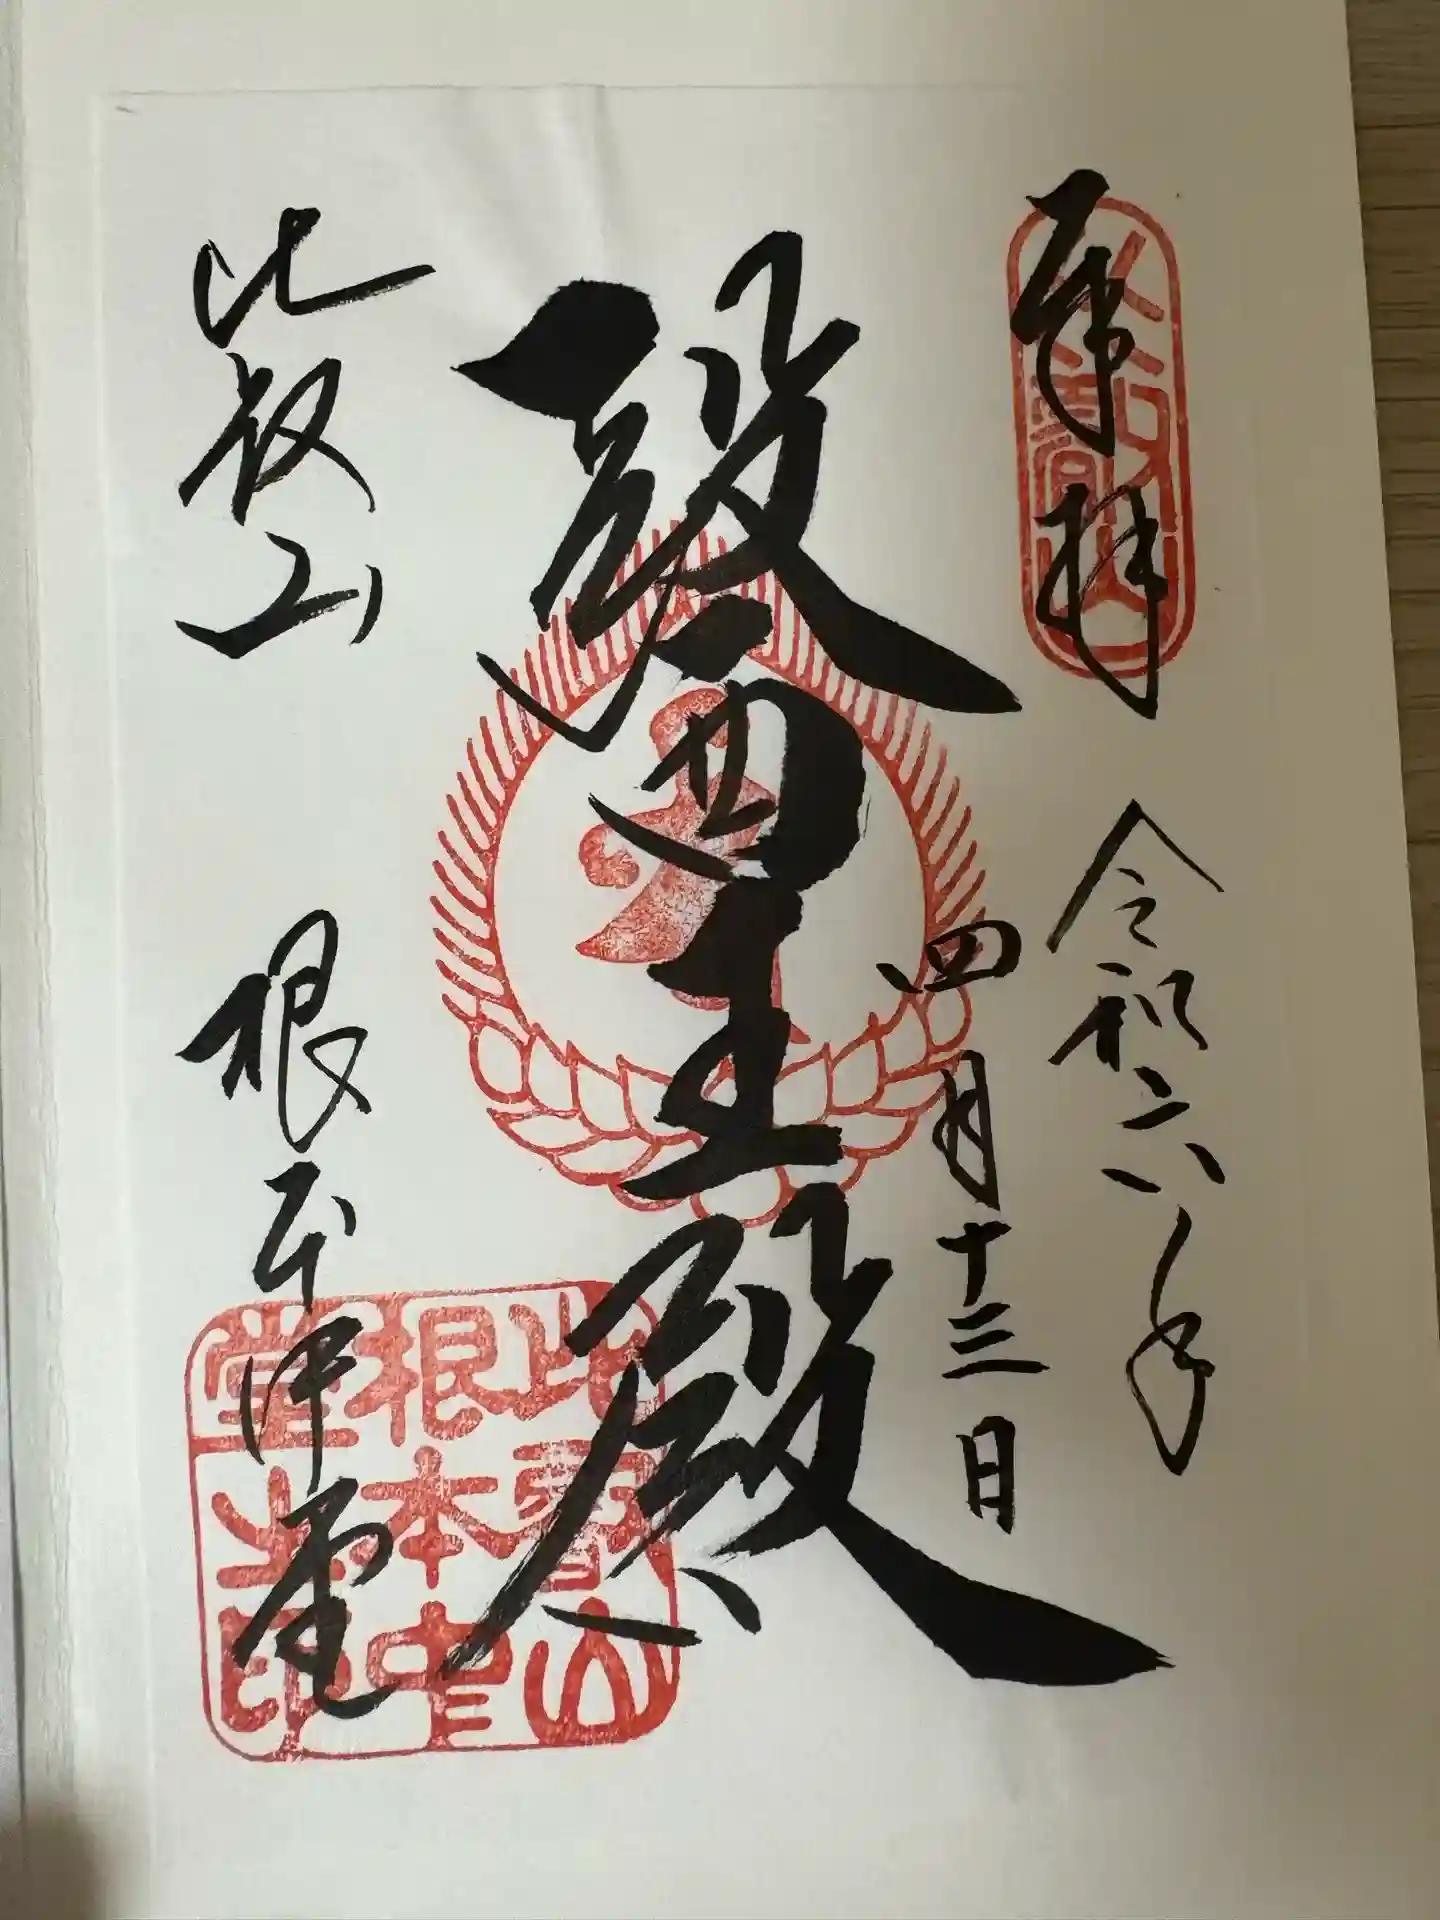 奉拝
令和六年
四月十三日
醫王殿
比叡山 根本中堂
比叡山
根本中
堂之印